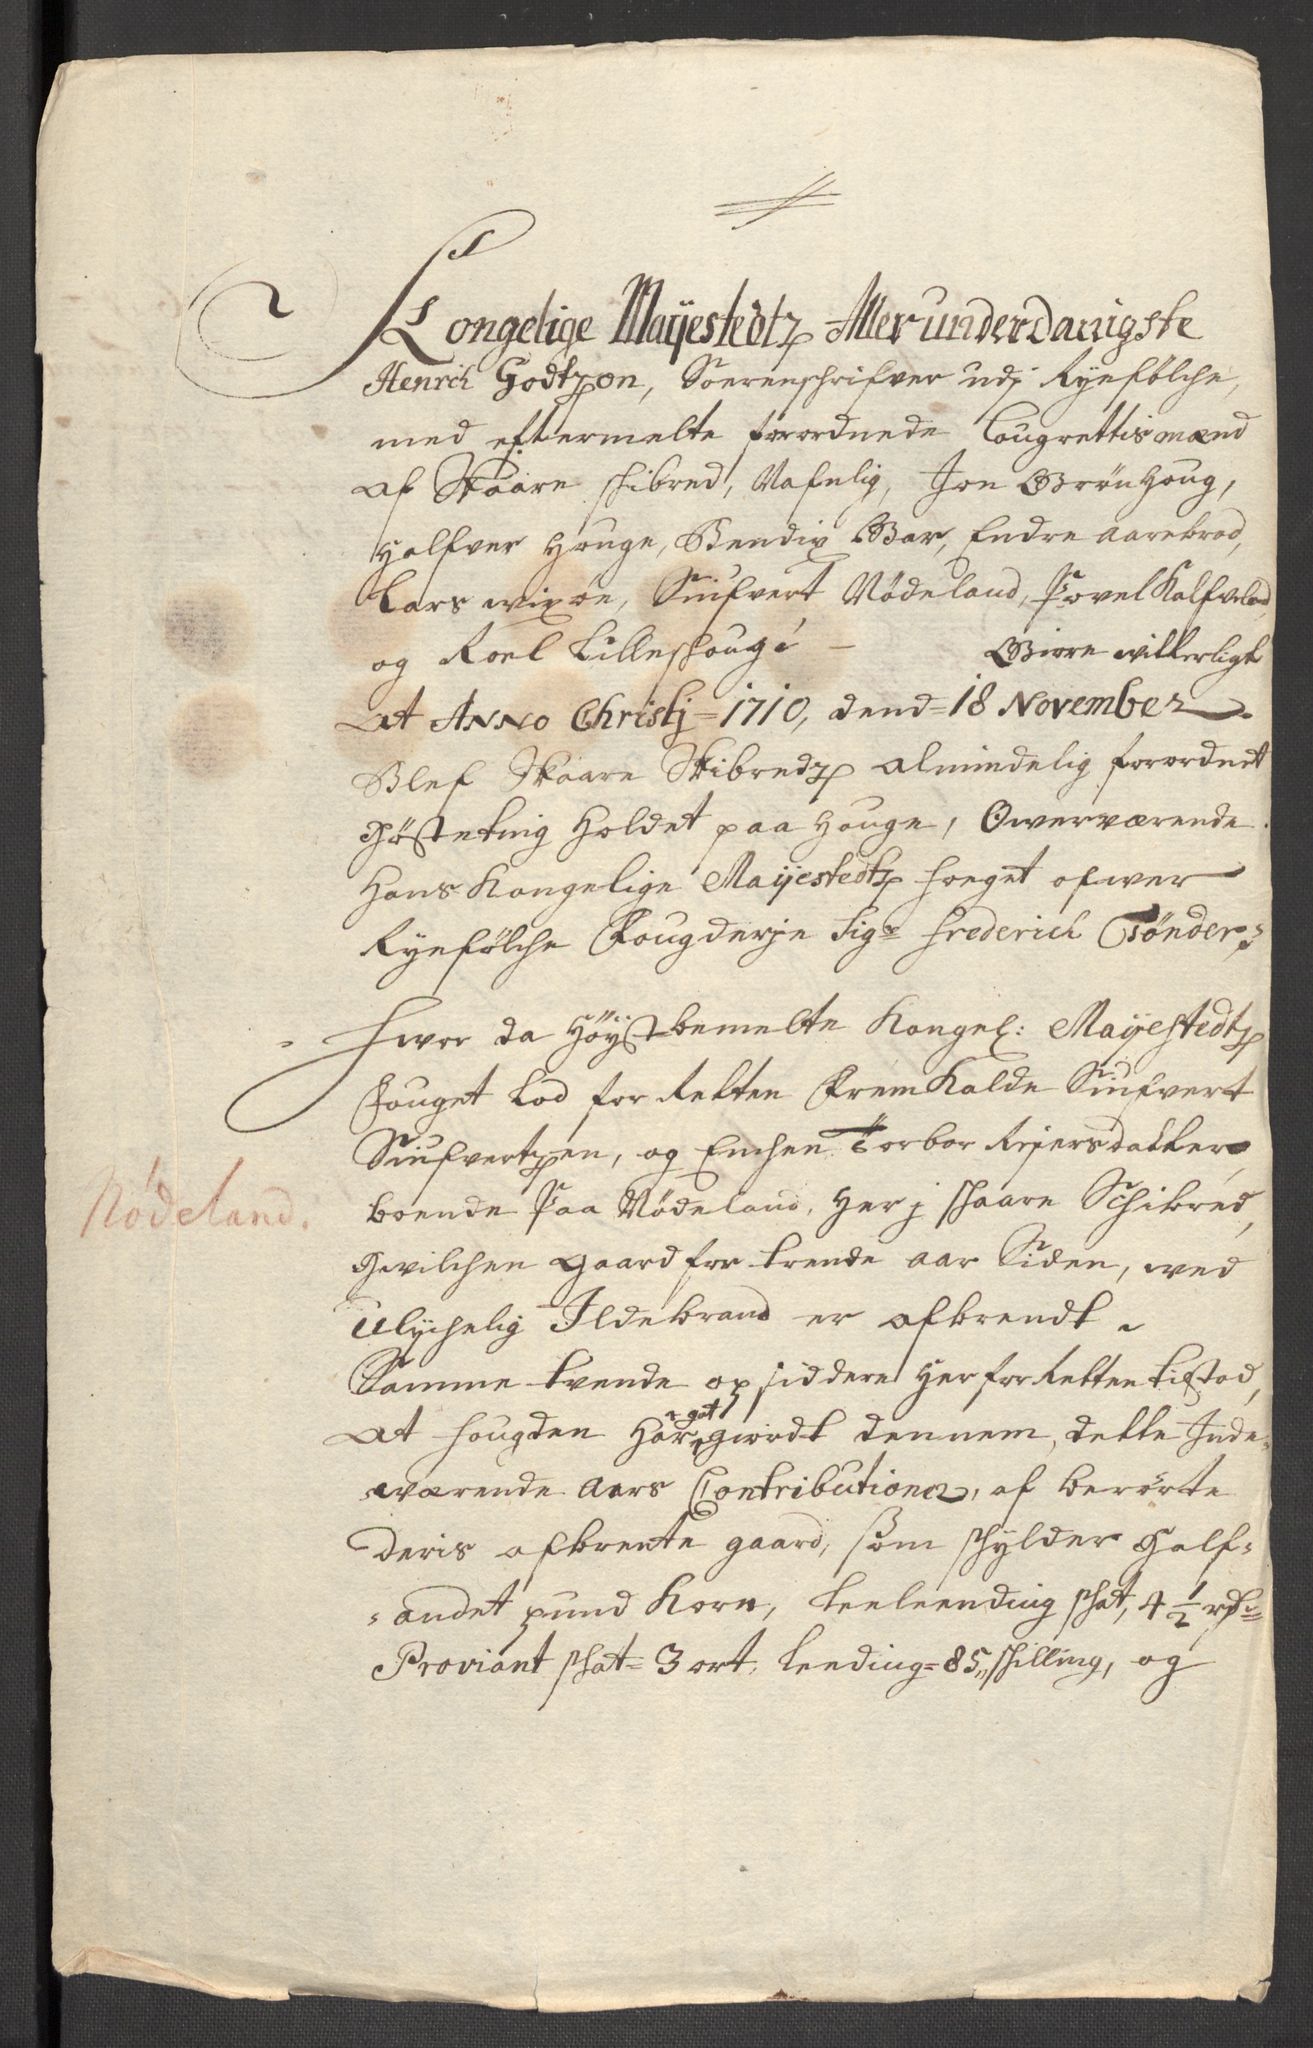 Kongelige Maÿestedtz Allerunderdanigste
Henrich Godtzøn, Sorenschrifver udj Rÿefÿlche,
med eftermelte forordnede Lougrettis mænd
af Skaare schibred, Nafnlig, Jon Grönhoug,
Halfver Houge, Bendix Bar, Endre Aarekrod,
Lars wixøe, Siufvert Nödeland, Powel Kalfveland,
og Roel Lilleschoug: Giøre witterligt
At Anno Christj = 1710, dend = 18 November
Blef Skaare Skibredz almindelig forordnet
Hösteting Holdet paa Houge, Owerværende
Hans Kongelige Maÿestedtz foeget ofwer
Rÿefÿlche Fougderje Sigr Frederich Tönder,
Hvor da Höÿstbemelte Kongel: Maÿestedtz
Fouget Lod for Retten Fremkalde Siufvert
Siufvertzen, og Enchen Torbor Reiersdatter
boende Paa Nödeland, Her j Skaare Schibred,
Nödeland.
Hwilchen gaard for trende aar Siden, wed
Ulÿchelig Ildebrand er afbrendt
Samme tvende opsiddere Her for Retten tilstod,
At fougden Har ngot giordt dennem, dette Inde-
wærende Aars Contributioner, af berörte
deris afbrente gaard, som schÿlder Half-
andet pund Korn, Leelending schat, 4 1/2 rdr
Proviant schat = 3 ort, Leeding = 85,, schilling, og